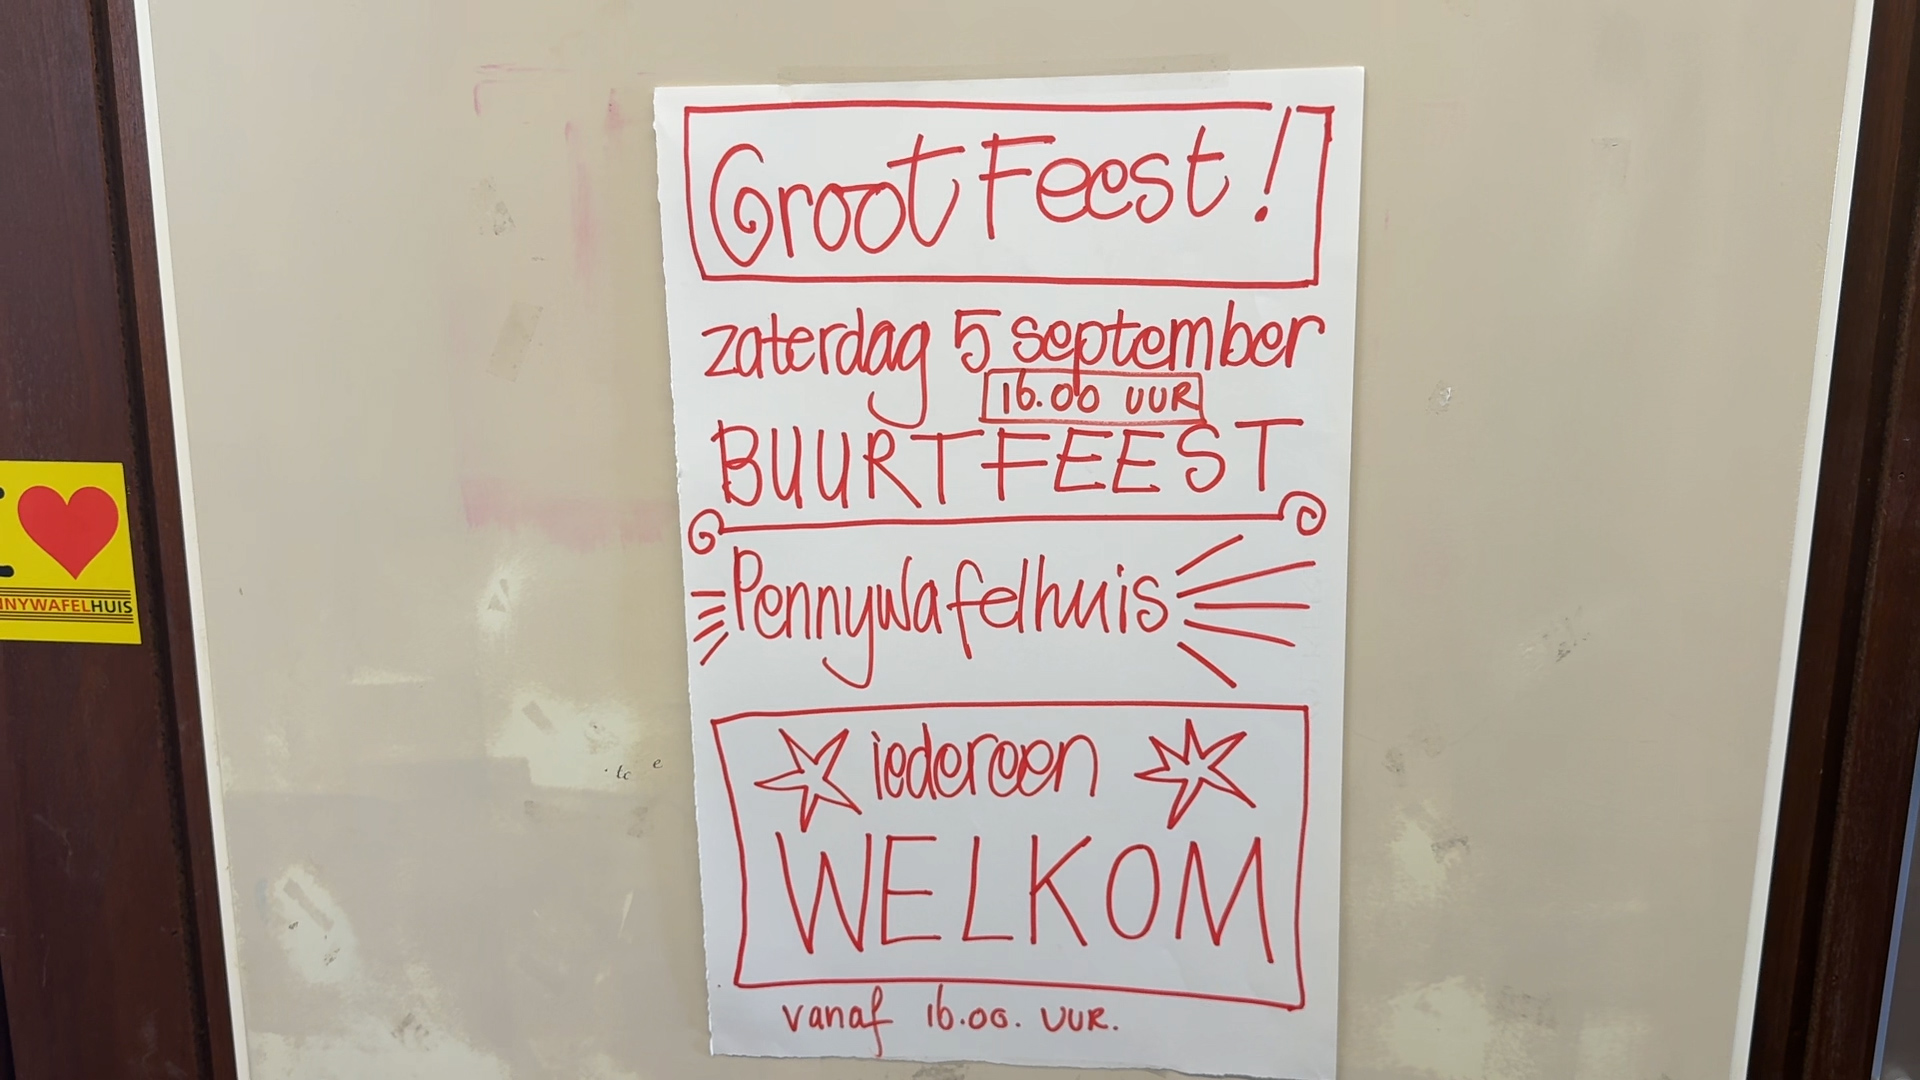 Groot Feest!
zaterdag 5 september
16.00 UUR
BUURTFEEST
Pennywafelhuis
iedereen
WELKOM
vanaf 16.00. UUR.
I
NNYWAFELHUIS